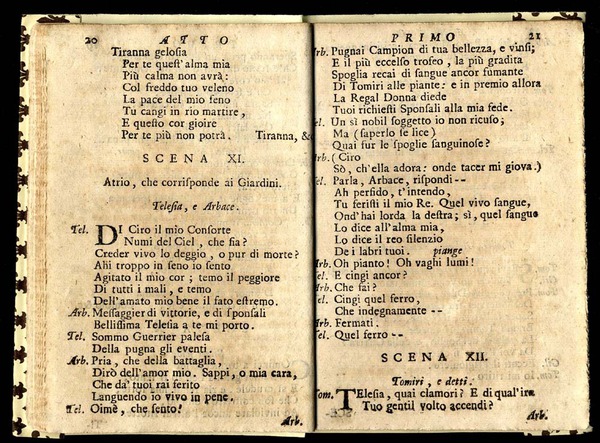 20 ATTO
Tiranna gelosia
Per te quest'alma mia
Più calma non avrà:
Col freddo tuo veleno
La pace del mio seno
Tu cangi in rio martire,
E questo cor gioire
Per te più non potrà. Tiranna, &c
SCENA XI.
Atrio, che corrisponde ai Giardini.
Telesia, e Arbace.
Tel. DI Ciro il mio Consorte
Numi del Ciel, che sia?
Creder vivo lo deggio, o pur di morte?
Ahi troppo in seno io sento
Agitato il mio cor; temo il peggiore
Di tutti i mali, e temo
Dell'amato mio bene il fato estremo.
Arb. Messaggier di vittorie, e di sponsali
Bellissima Telesia a te mi porto.
Tel. Sommo Guerrier palesa
Della pugna gli eventi.
Arb. Pria, che della battaglia,
Dirò dell'amor mio. Sappi, o mia cara,
Che da' tuoi rai ferito
Languendo io vivo in pene.
Tel. Oimè, che sento!
Arb.
PRIMO 21
Arb. Pugnai Campion di tua bellezza, e vinsi;
E il più eccelso trofeo, la più gradita
Spoglia recai di sangue ancor fumante
Di Tomiri alle piante: e in premio allora
La Regal Donna diede
Tuoi richiesti Sponsali alla mia fede.
Tel. Un sì nobil soggetto io non ricuso;
Ma (saperlo se lice)
Quai fur le spoglie sanguinose?
Arb. (Ciro
Sò, ch'ella adora: onde tacer mi giova.)
Tel. Parla, Arbace, rispondi --
Ah perfido, t'intendo,
Tu feristi il mio Re. Quel vivo sangue,
Ond'hai lorda la destra; sì, quel sangue
Lo dice all'alma mia,
Lo dice il reo silenzio
De i labri tuoi. piange
Arb. Oh pianto! Oh vaghi lumi!
Tel. E cingi ancor?
Arb. Che fai?
Tel. Cingi quel ferro,
Che indegnamente --
Arb. Fermati.
Tel. Quel ferro --
SCENA XII.
Tomiri, e detti.
Tom. TElesia, quai clamori? E di qual'ira
Tuo gentil volto accendi?
Arb.